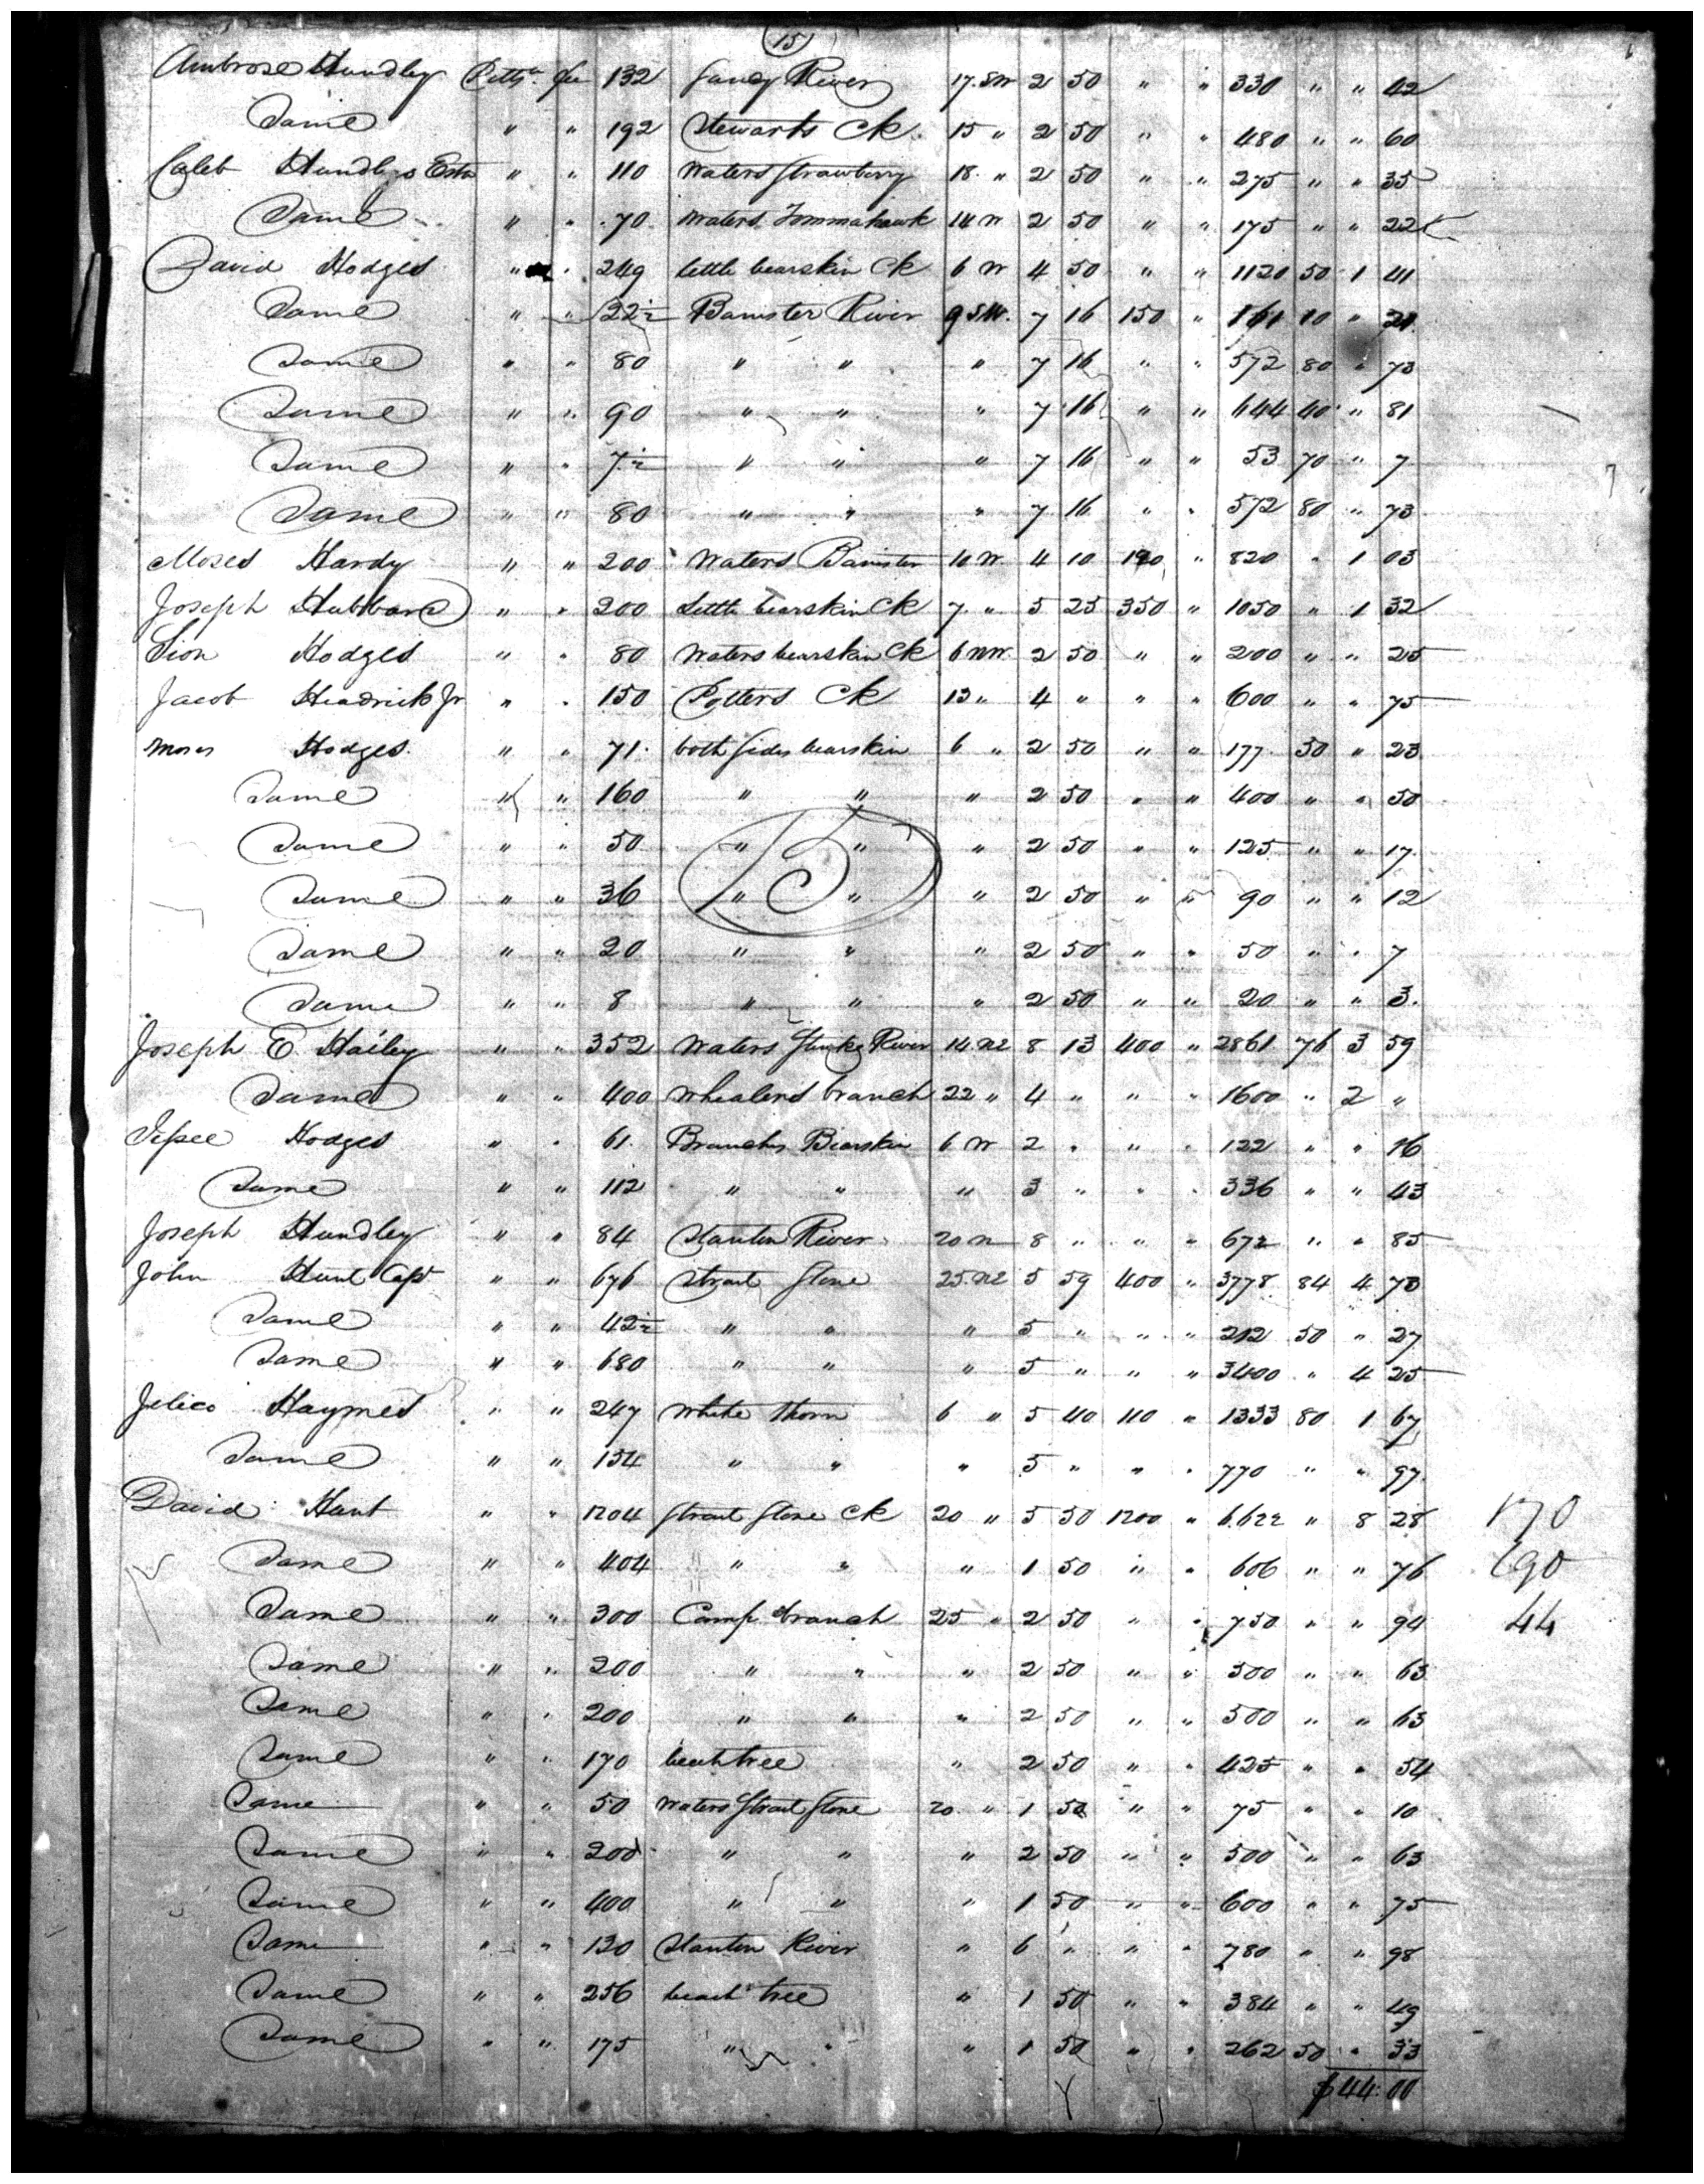 15
Ambrose Hundley Pittsa. fee 132 Sandy River 17. SW 2 50 " " 330 " " 42
Same " " 192 Stewarts Ck. 15 " 2 50 " " 480 " " 60
Caleb Hundleys Este " " 110 Waters Strawberry 18. " 2 50 " " 275 " " 35
Same " " 70 Waters Tommahawk 14 W 2 50 " " 175 " " 22
David Hodges " " 249 little bearskin Ck 6 W 4 50 " " 1120 50 1 41
Same " " 22½ Banister River 9 SW. 7 16 150 " 161 10 " 21
Same " " 80 " " " 7 16 " " 572 80 " 73
Same " " 90 " " " 7 16 " " 644 40 " 81
Same " " 7½ " " " 7 16 " " 53 70 " 7
Same " " 80 " " " 7 16 " " 572 80 " 73
Moses Hardy " " 200 Waters Banister 10 W 4 10 190 " 820 " 1 03
Joseph Hubbard " " 200 Little bearskin Ck 7. " 5 25 350 " 1050 " 1 32
Sion Hodges " " 80 Waters bearskin Ck 6 NW. 2 50 " " 200 " " 25
Jacob Headrick Jr " " 150 Potters Ck 13 " 4 " " " 600 " " 75
Moses Hodges. " " 71. both sides bearskin 6 " 2 50 " " 177 50 " 23
Same " " 160 " " " 2 50 " " 400 " " 50
Same " " 50 " " " 2 50 " " 125 " " 17.
15
Same " " 36 " " " 2 50 " " 90 " " 12
Same " " 20 " " " 2 50 " " 50 " " 7
Same " " 8 " " " 2 50 " " 20 " " 3.
Joseph E. Hailey " " 352 Waters Stinkg River 14. NE 8 13 400 " 2861 76 3 59
Same " " 400 Whealers branch 22 " 4 " " " 1600 " 2 "
Jessee Hodges " " 61. Branches Bearskin 6 W 2 " " " 122 " " 16
Same " " 112 " " " 3 " " " 336 " " 43
Joseph Hundley " " 84 Stanton River 20 N 8 " " " 672 " " 85
John Hunt Capt " " 676 Strait Stone 25. NE 5 59 400 " 3778 84 4 73
Same " " 42½ " " " 5 " " " 212 50 " 27
Same " " 680 " " " 5 " " " 3400 " 4 25
Haymes " " 247 White Thorn 6 " 5 40 110 " 1333 80 1 67
Same " " 154 " " " 5 " " " 770 " " 97
David Hunt " " 1204 Strait Stone Ck 20 " 5 50 1200 " 6.622 " 8 28 170
Same " " 404 " " " 1 50 " " 606 " " 76 90
Same " " 300 Camp branch 25 " 2 50 " " 750 " " 94 44
Same " " 200 " " " 2 50 " " 500 " " 63
Same " " 200 " " " 2 50 " " 500 " " 63
Same " " 170 beachtree " 2 50 " " 425 " " 54
Same " " 50 Waters Strait Stone 20. " 1 50 " " 75 " " 10
Same " " 200 " " " 2 50 " " 500 " " 63
Same " " 400 " " " 1 50 " " 600 " " 75
Same " " 130 Stanton River " 6 " " " 780 " " 98
Same " " 256 beach tree " 1 50 " " 384 " " 49
Same " " 175 " " " 1 50 " " 262 50 " 33
$44.00